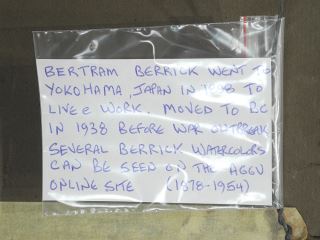 BERTRAM BERRICK WENT TO
YOKOHAMA, JAPAN IN 1898 TO
LIVE & WORK. MOVED TO BC
IN 1938 BEFORE WAR OUTBREAK
SEVERAL BERRICK WATERCOLORS
CAN BE SEEN ON THE AGGV
ONLINE SITE (1878-1954)